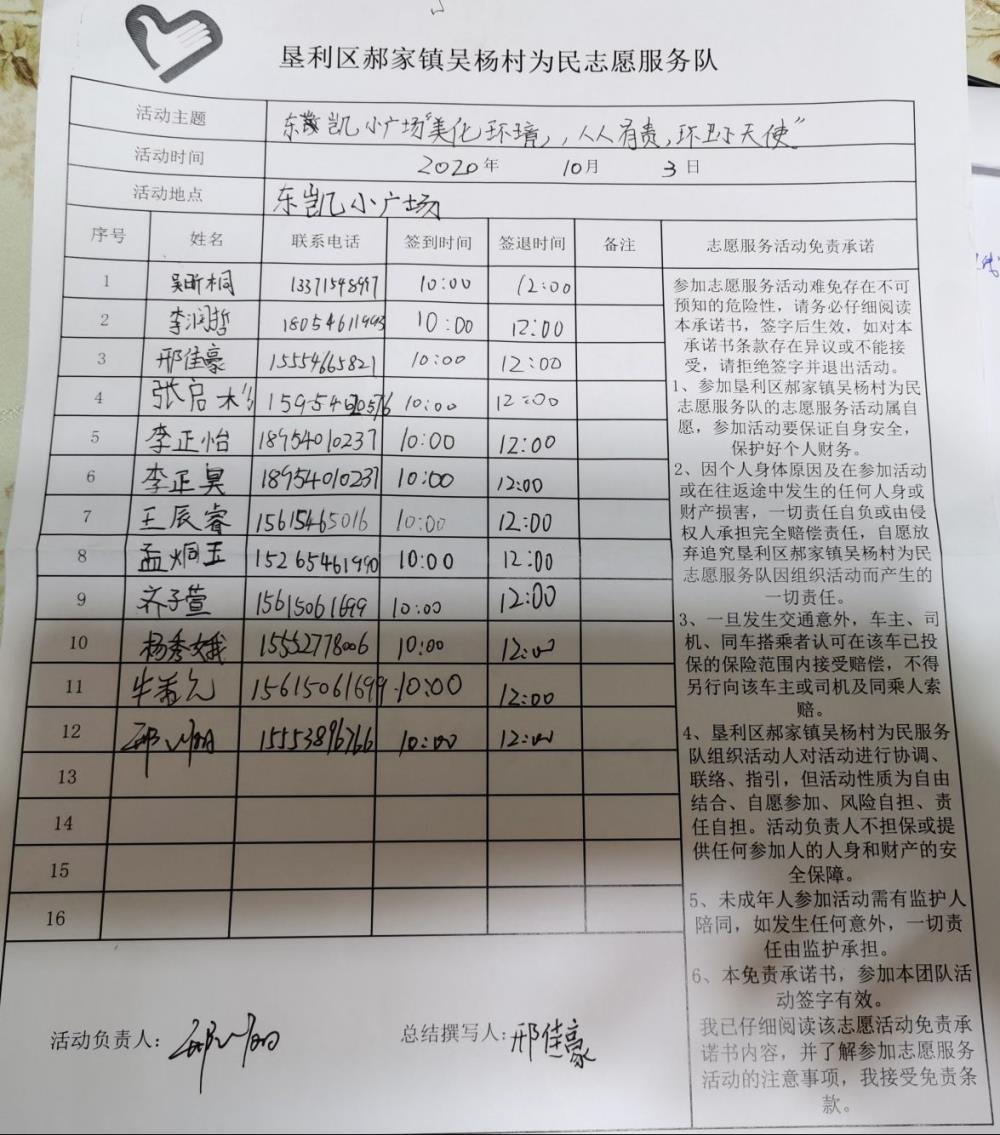 垦利区郝家镇吴杨村为民志愿服务队
活动主题 东凯小广场“美化环境，，人人有责，环卫小天使”
活动时间 2020年 10月 3日
活动地点 东凯小广场
序号 姓名 联系电话 签到时间 签退时间 备注 志愿服务活动免责承诺
1 吴昕桐 13371548997 10:00 12:00
2 李润哲 18054611993 10:00 12:00
3 邢佳豪 15554665821 10:00 12:00
4 张启 10:00 12:00
5 李正怡 18954010237 10:00 12:00
6 李正昊 18954010237 10:00 12:00
7 王辰睿 15615465016 10:00 12:00
8 孟炯玉 15265461990 10:00 12:00
9 齐子萱 15615061699 10:00 12:00
10 杨秀娥 15552778006 10:00 12:00
11 15615061699 10:00 12:00
12 15553896766 10:00 12:00
13
14
15
16
参加志愿服务活动难免存在不可
预知的危险性，请务必仔细阅读
本承诺书，签字后生效，如对本
承诺书条款存在异议或不能接
受，请拒绝签字并退出活动。
1、参加垦利区郝家镇吴杨村为民
志愿服务队的志愿服务活动属自
愿，参加活动要保证自身安全，
保护好个人财务。
2、因个人身体原因及在参加活动
或在往返途中发生的任何人身或
财产损害，一切责任自负或由侵
权人承担完全赔偿责任，自愿放
弃追究垦利区郝家镇吴杨村为民
志愿服务队因组织活动而产生的
一切责任。
3、一旦发生交通意外，车主、司
机、同车搭乘者认可在该车已投
保的保险范围内接受赔偿，不得
另行向该车主或司机及同乘人索
赔。
4、垦利区郝家镇吴杨村为民服务
队组织活动人对活动进行协调、
联络、指引，但活动性质为自由
结合、自愿参加、风险自担、责
任自担。活动负责人不担保或提
供任何参加人的人身和财产的安
全保障。
5、未成年人参加活动需有监护人
陪同，如发生任何意外，一切责
任由监护承担。
6、本免责承诺书，参加本团队活
动签字有效。
我已仔细阅读该志愿活动免责承
诺书内容，并了解参加志愿服务
活动的注意事项，我接受免责条
款。
活动负责人： 总结撰写人：邢佳豪